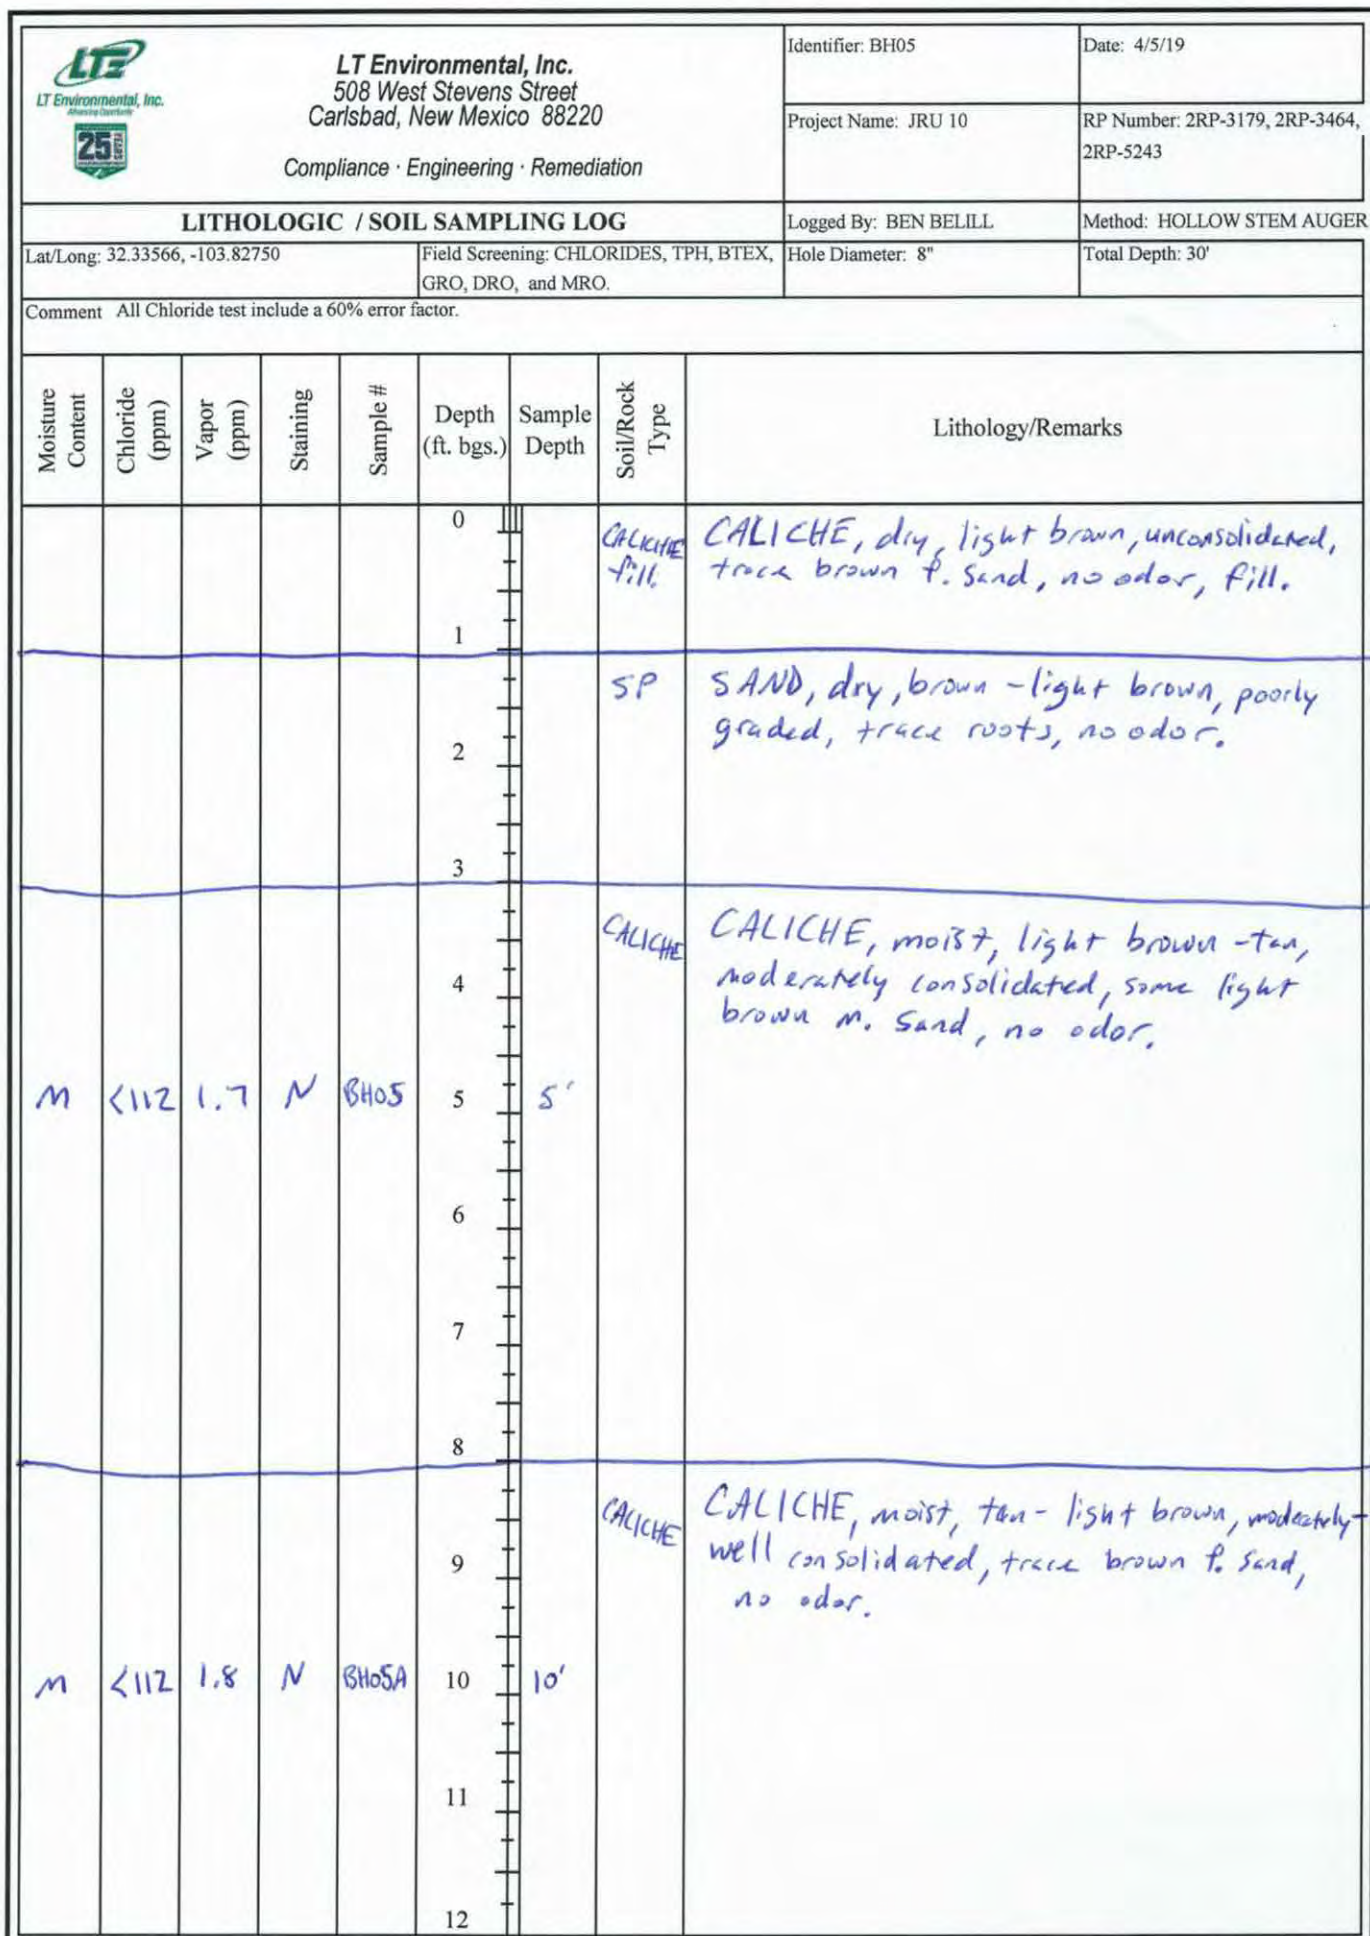 LTE
LT Environmental, Inc.
Advancing Opportunity
25 YEARS
LT Environmental, Inc.
508 West Stevens Street
Carlsbad, New Mexico 88220
Compliance · Engineering · Remediation
Identifier: BH05
Date: 4/5/19
Project Name: JRU 10
RP Number: 2RP-3179, 2RP-3464,
2RP-5243
LITHOLOGIC / SOIL SAMPLING LOG
Logged By: BEN BELILL
Method: HOLLOW STEM AUGER
Lat/Long: 32.33566, -103.82750
Field Screening: CHLORIDES, TPH, BTEX,
GRO, DRO, and MRO.
Hole Diameter: 8"
Total Depth: 30'
Comment All Chloride test include a 60% error factor.
Moisture
Content
Chloride
(ppm)
Vapor
(ppm)
Staining
Sample #
Depth
(ft. bgs.)
Sample
Depth
Soil/Rock
Type
Lithology/Remarks
0
CALICHE
fill
CALICHE, dry, light brown, unconsolidated,
trace brown f. sand, no odor, fill.
1
SP
SAND, dry, brown - light brown, poorly
graded, trace roots, no odor.
2
3
CALICHE
CALICHE, moist, light brown - tan,
moderately consolidated, some light
brown m. sand, no odor.
4
M <112 1.7 N BH05 5 5'
6
7
8
CALICHE
CALICHE, moist, tan - light brown, moderately-
well consolidated, trace brown f. sand,
no odor.
9
M <112 1.8 N BH05A 10 10'
11
12